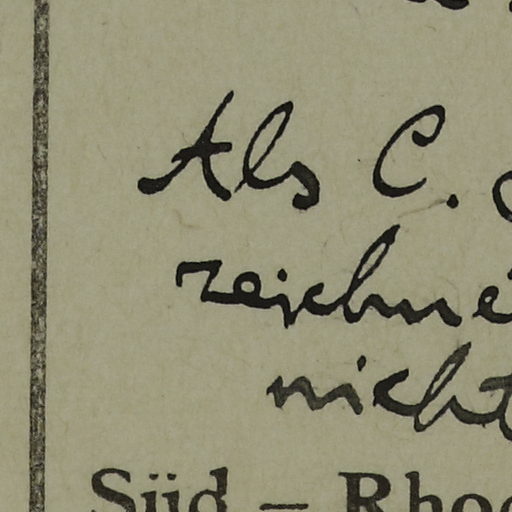 Als C.
zeichne
nicht
Süd – Rho